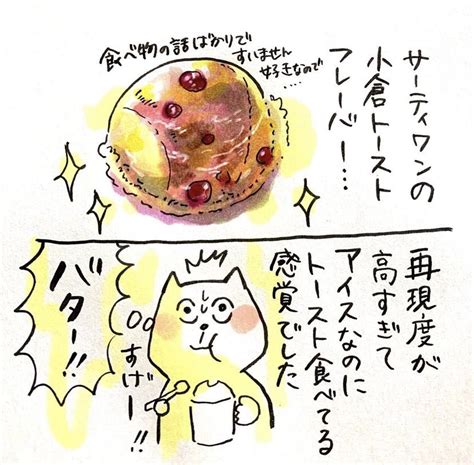 サーティワンの
小倉トースト
フレーバー…
食べ物の話ばかりで
すいません
好きなので…
再現度が
高すぎて
アイスなのに
トースト食べてる
感覚でした
すげー!!
バター!!